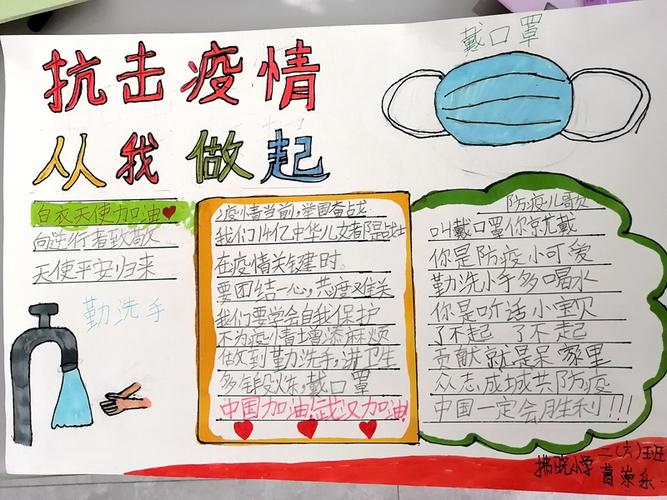 抗击疫情
从我做起
戴口罩
白衣天使加油
向逆行者致敬
天使平安归来
勤洗手
疫情当前,举国奋战.
我们14亿中华儿女都是战士
在疫情关键时.
要团结一心,共度难关
我们要学会自我保护
不为疫情增添麻烦
做到勤洗手,讲卫生
多锻炼,戴口罩
中国加油!武汉加油!
防疫儿歌
叫戴口罩你就戴
你是防疫小可爱
勤洗小手多喝水
你是听话小宝贝
了不起 了不起
贡献就是呆家里
众志成城共防疫
中国一定会胜利!!!
拂晓小学 二(六)班
葛